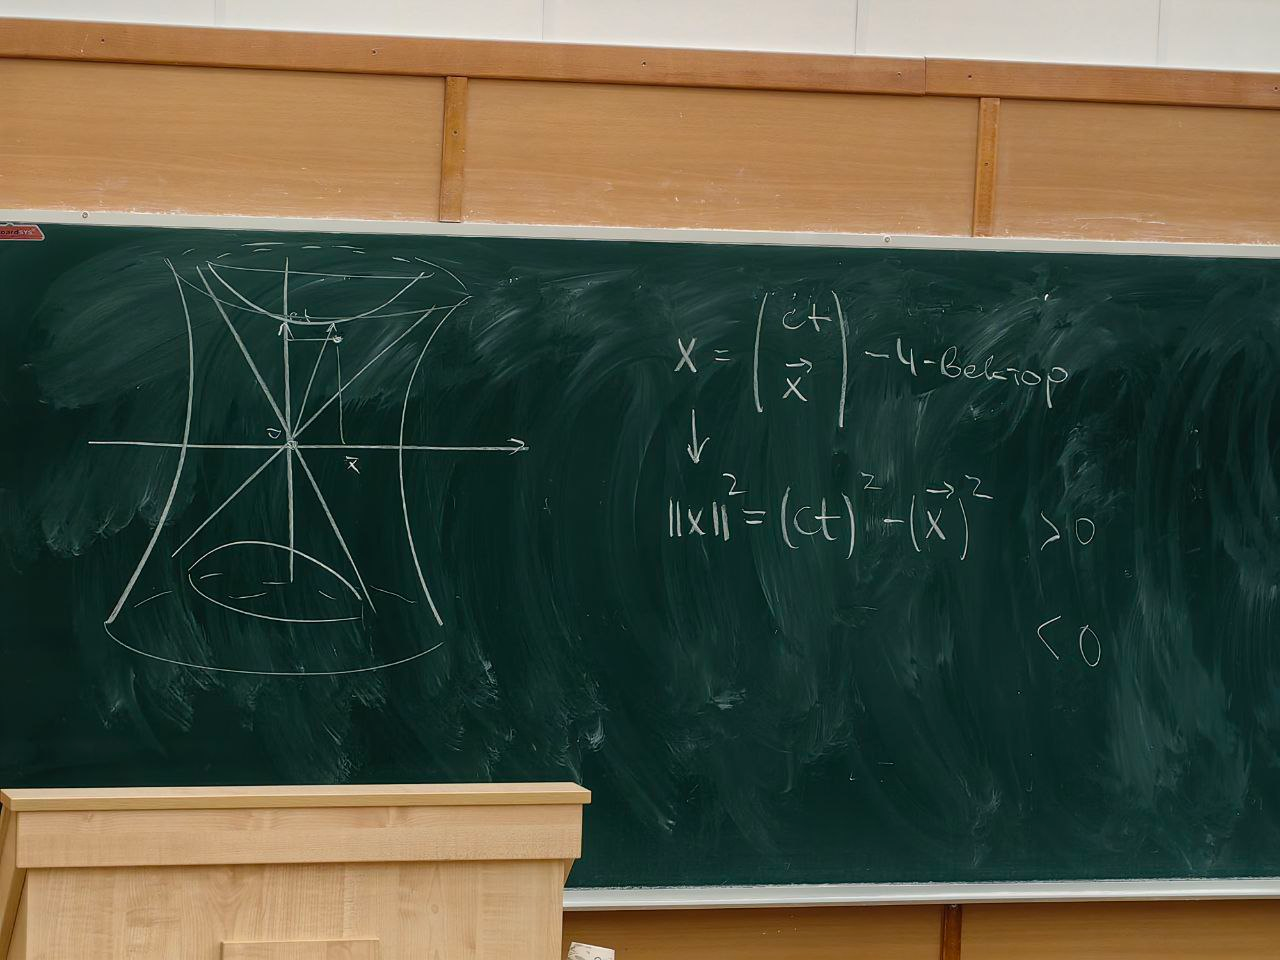 ct
0
x⃗
x = (ct
x⃗) – 4-вектор
↓
||x||² = (ct)² - (x⃗)² > 0
< 0